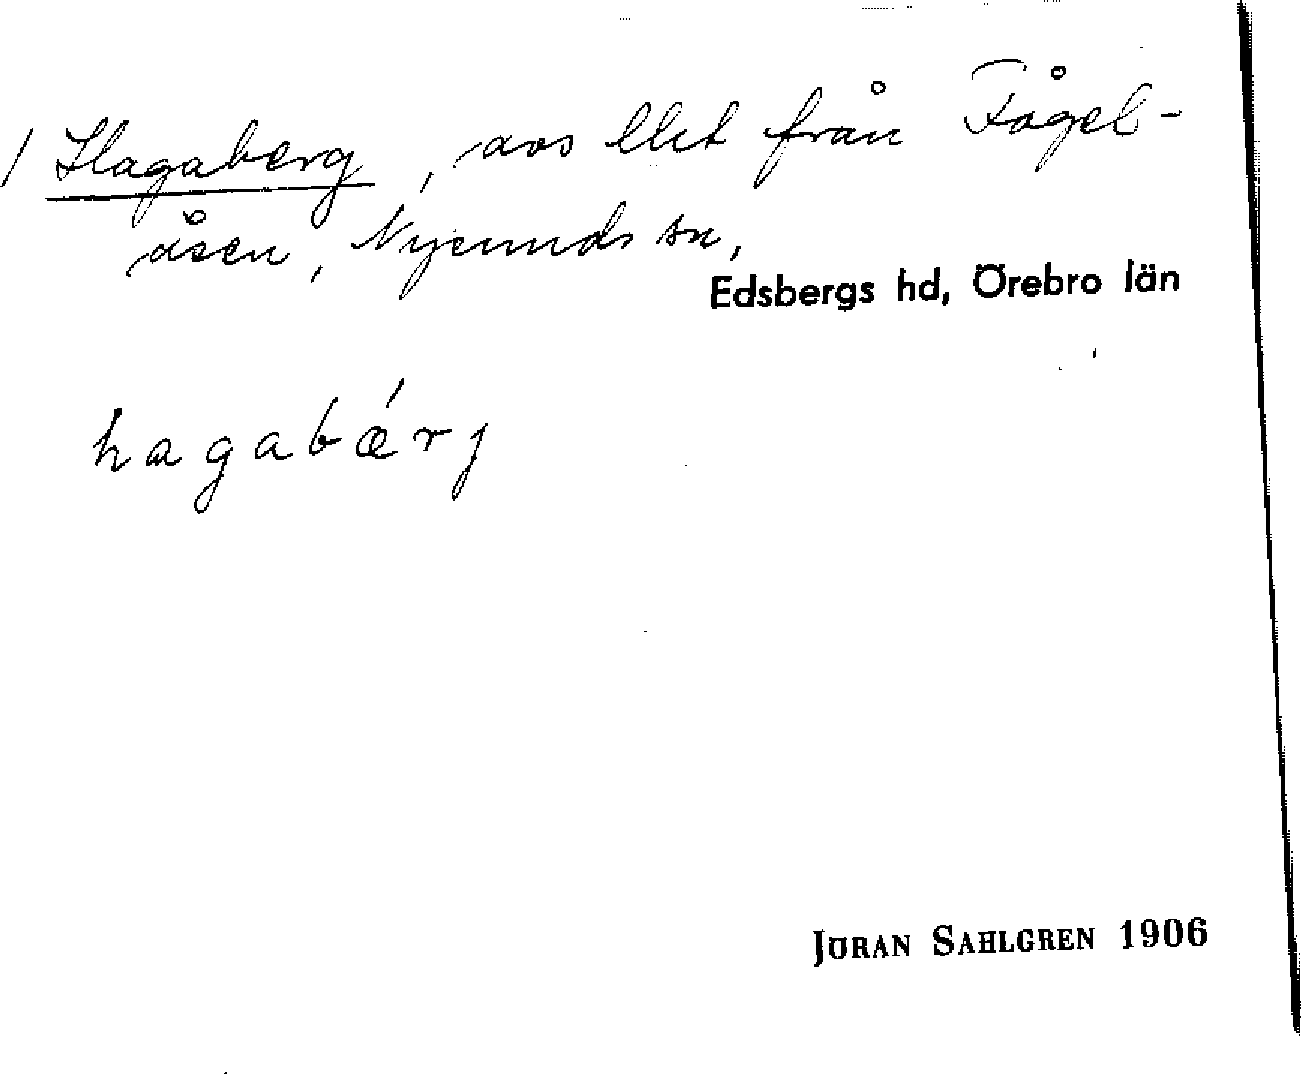 / Hagaberg, avs llet från Fågel-
åsen, Nysunds sn,
Edsbergs hd, Örebro län
hagabǽrj
JÖRAN SAHLGREN 1906